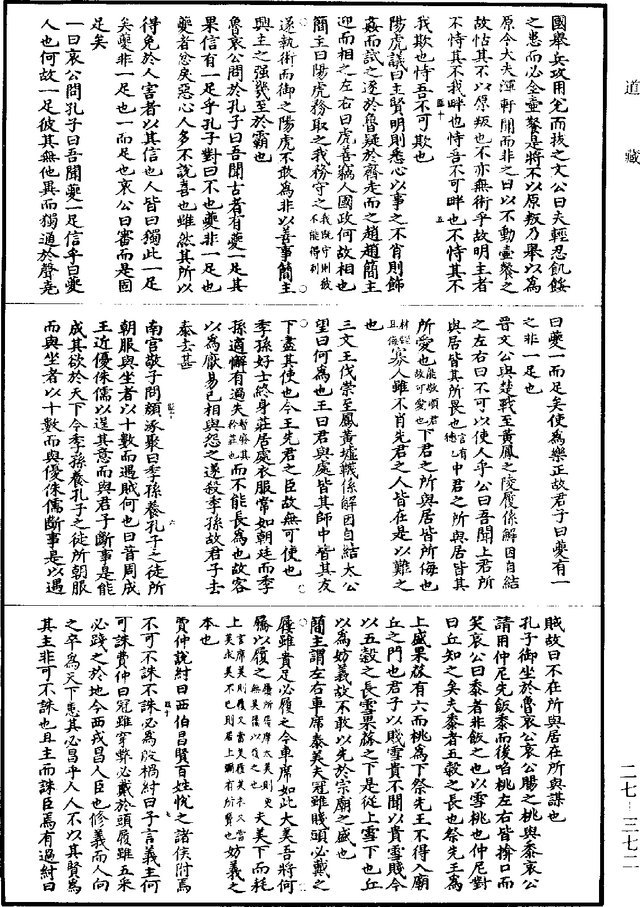 道藏
國舉兵攻原克而拔之文公曰夫輕忍飢餒
之患而必全壷餐是將不以原叛乃舉以為
原令大夫渾軒聞而非之曰以不動壷餐之
故怙其不以原叛也不亦無術乎故明主者
不恃其不我畔也恃吾不可畔也不恃其不
我欺也恃吾不可欺也
陽虎議曰主賢明則悉心以事之不肖則飾
姦而試之逐於魯疑於齊走而之趙趙簡主
迎而相之左右曰虎善竊人國政何故相也
簡主曰陽虎務取之我務守之我既守則彼不能得利
遂執術而御之陽虎不敢為非以善事簡主
興主之强幾至於霸也
魯哀公問於孔子曰吾聞古者有夔一足其
果信有一足乎孔子對曰不也夔非一足也
夔者忿戾惡心人多不說喜也雖然其所以
得免於人害者以其信也人皆曰獨此一足
矣夔非一足也一而足也哀公曰審而是固
足矣
一曰哀公問孔子曰吾聞夔一足信乎曰夔
人也何故一足彼其無他異而獨通於聲堯
曰夔一而足矣使為樂正故君子曰夔有一
之非一足也
晉文公與楚戰至黃鳳之陵履係解因自結
之左右曰不可以使人乎公曰吾聞上君所
與居皆其所畏也中君之所與居皆其
所愛也能敬順君故可愛也下君之所與居皆所侮也
寡人雖不肖先君之人皆在是以難之
也
三文王伐崇至鳳黃墟韈係解因自結太公
望曰何為也王曰君與處皆其師中皆其友
下盡其使也今王先君之臣故無可使也
季孫好士終身莊居處衣服常如朝廷而季
孫適懈有過失而不能長為也故客
以為厭易已相與怨之遂殺季孫故君子去
泰去甚
南宮敬子問顏涿聚曰季孫養孔子之徒所
朝服與坐者以十數而遇賊何也曰昔周成
王近優侏儒以逞其意而與君子斷事是能
成其欲於天下今季孫養孔子之徒所朝服
而與坐者以十數而與優侏儒斷事是以遇
賊故曰不在所與居在所與謀也
孔子御坐於魯哀公哀公賜之桃與黍哀公
請用仲尼先飯黍而後啗桃左右皆揜口而
笑哀公曰黍者非飯之也以雪桃也仲尼對
曰丘知之矣夫黍者五穀之長也祭先王為
上盛果蓏有六而桃為下祭先王不得入廟
丘之門也君子以賤雪貴不聞以貴雪賤今
以五穀之長雪果蓏之下是從上雪下也丘
以為妨義故不敢以先於宗廟之盛也
簡主謂左右車席泰美夫冠雖賤頭必戴之
屨雖貴足必履之今車席如此大美吾將何
屩以履之夫美下而耗
上妨義之
本也
費仲說紂曰西伯昌賢百姓悅之諸侯附焉
不可不誅不誅必為殷禍紂曰子言義主何
可誅費仲曰冠雖穿弊必戴於頭履雖五采
必踐之於地今西戎昌人臣也修義而人向
之卒為天下患其必昌乎人人不以其賢為
其主非可不誅也且主而誅臣焉有過紂曰
二七—三七二